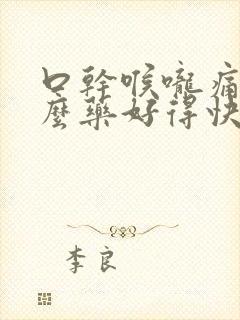 口幹喉嚨痛
麼藥好得快
李良